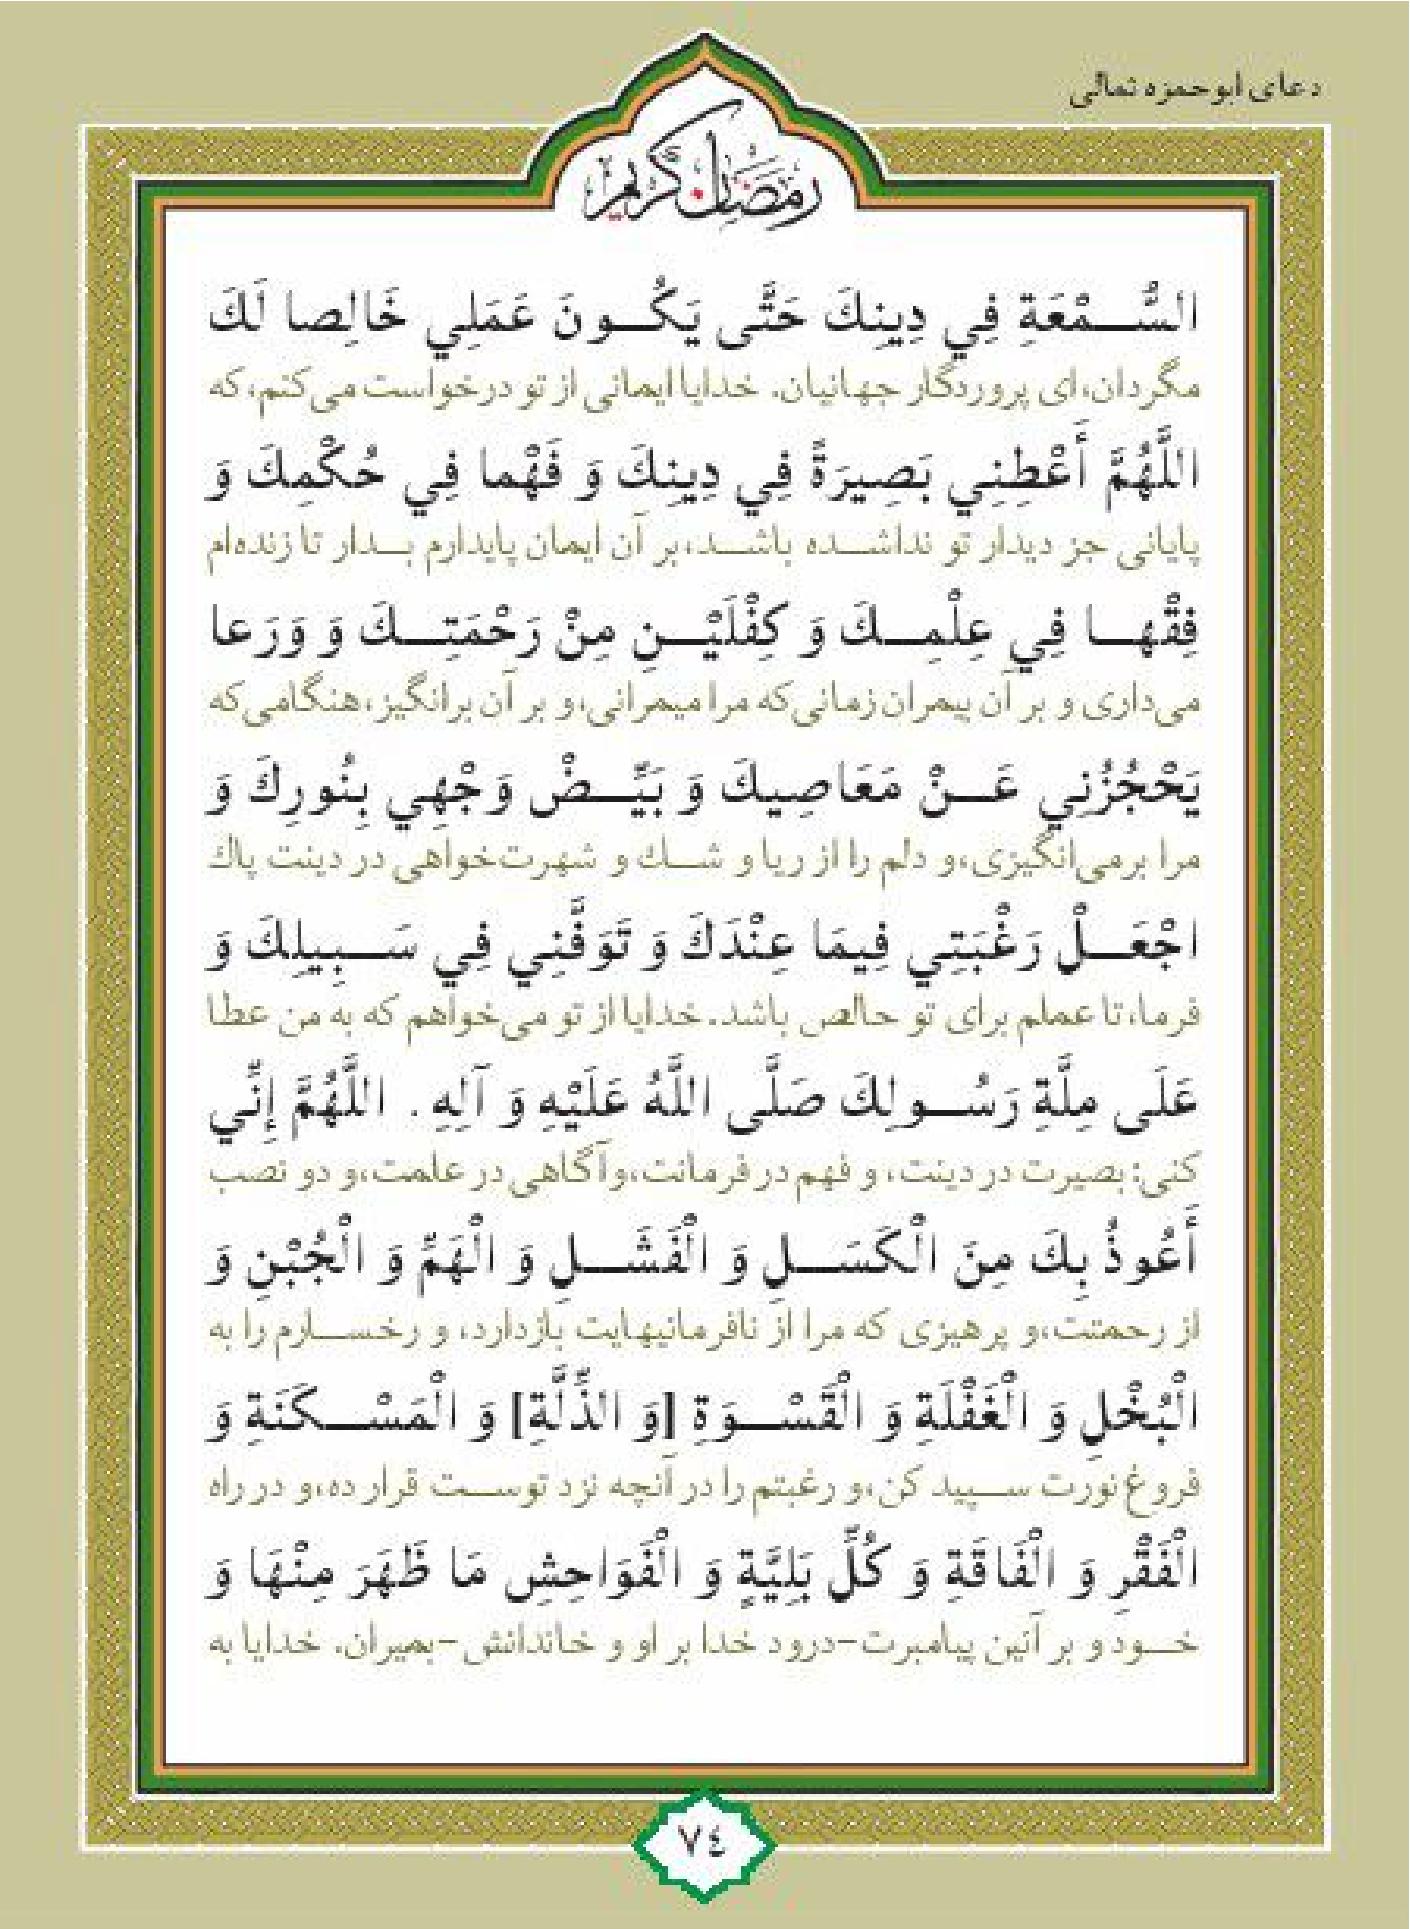 دعای ابوحمزه ثمالی
رمضان کریم
السُّمْعَةِ فِي دِينِكَ حَتَّى يَكُونَ عَمَلِي خَالِصا لَكَ
مگردان،ای پروردگار جهانیان. خدایا ایمانی از تو درخواست می‌کنم، که
اللَّهُمَّ أَعْطِنِي بَصِيرَةً فِي دِينِكَ وَ فَهْما فِي حُكْمِكَ وَ
پایانی جز دیدار تو نداشده باشد،بر آن ایمان پایدارم بدار تا زنده‌ام
فِقْها فِي عِلْمِكَ وَ كِفْلَيْنِ مِنْ رَحْمَتِكَ وَ وَرَعا
می‌داری و بر آن بیمران زمانی‌که مرا میمرانی،و بر آن برانگیز،هنگامی‌که
يَحْجُزُنِي عَنْ مَعَاصِيكَ وَ بَيِّضْ وَجْهِي بِنُورِكَ وَ
مرا برمی‌انگیزی،و دلم را از ریا و شك و شهرت‌خواهی در دینت پاك
اجْعَلْ رَغْبَتِي فِيمَا عِنْدَكَ وَ تَوَفَّنِي فِي سَبِيلِكَ وَ
فرما،تا عملم برای تو خالص باشد.خدایا از تو می‌خواهم که به من عطا
عَلَى مِلَّةِ رَسُولِكَ صَلَّى اللَّهُ عَلَيْهِ وَ آلِهِ . اللَّهُمَّ إِنِّي
کنی:بصیرت در دینت، و فهم در فرمانت،وآگاهی در علمت،و دو نصب
أَعُوذُ بِكَ مِنَ الْكَسَلِ وَ الْفَشَلِ وَ الْهَمِّ وَ الْجُبْنِ وَ
از رحمتت،و پرهیزی که مرا از نافرمانیهایت بازدارد، و رخسارم را به
الْبُخْلِ وَ الْغَفْلَةِ وَ الْقَسْوَةِ [وَ الذِّلَّةِ] وَ الْمَسْكَنَةِ وَ
فروغ نورت سپید کن،و رغبتم را در آنچه نزد توست قرار ده،و در راه
الْفَقْرِ وَ الْفَاقَةِ وَ كُلِّ بَلِيَّةٍ وَ الْفَوَاحِشِ مَا ظَهَرَ مِنْهَا وَ
خود و بر آئین پیامبرت-درود خدا بر او و خاندانش-بمیران. خدایا به
٧٤